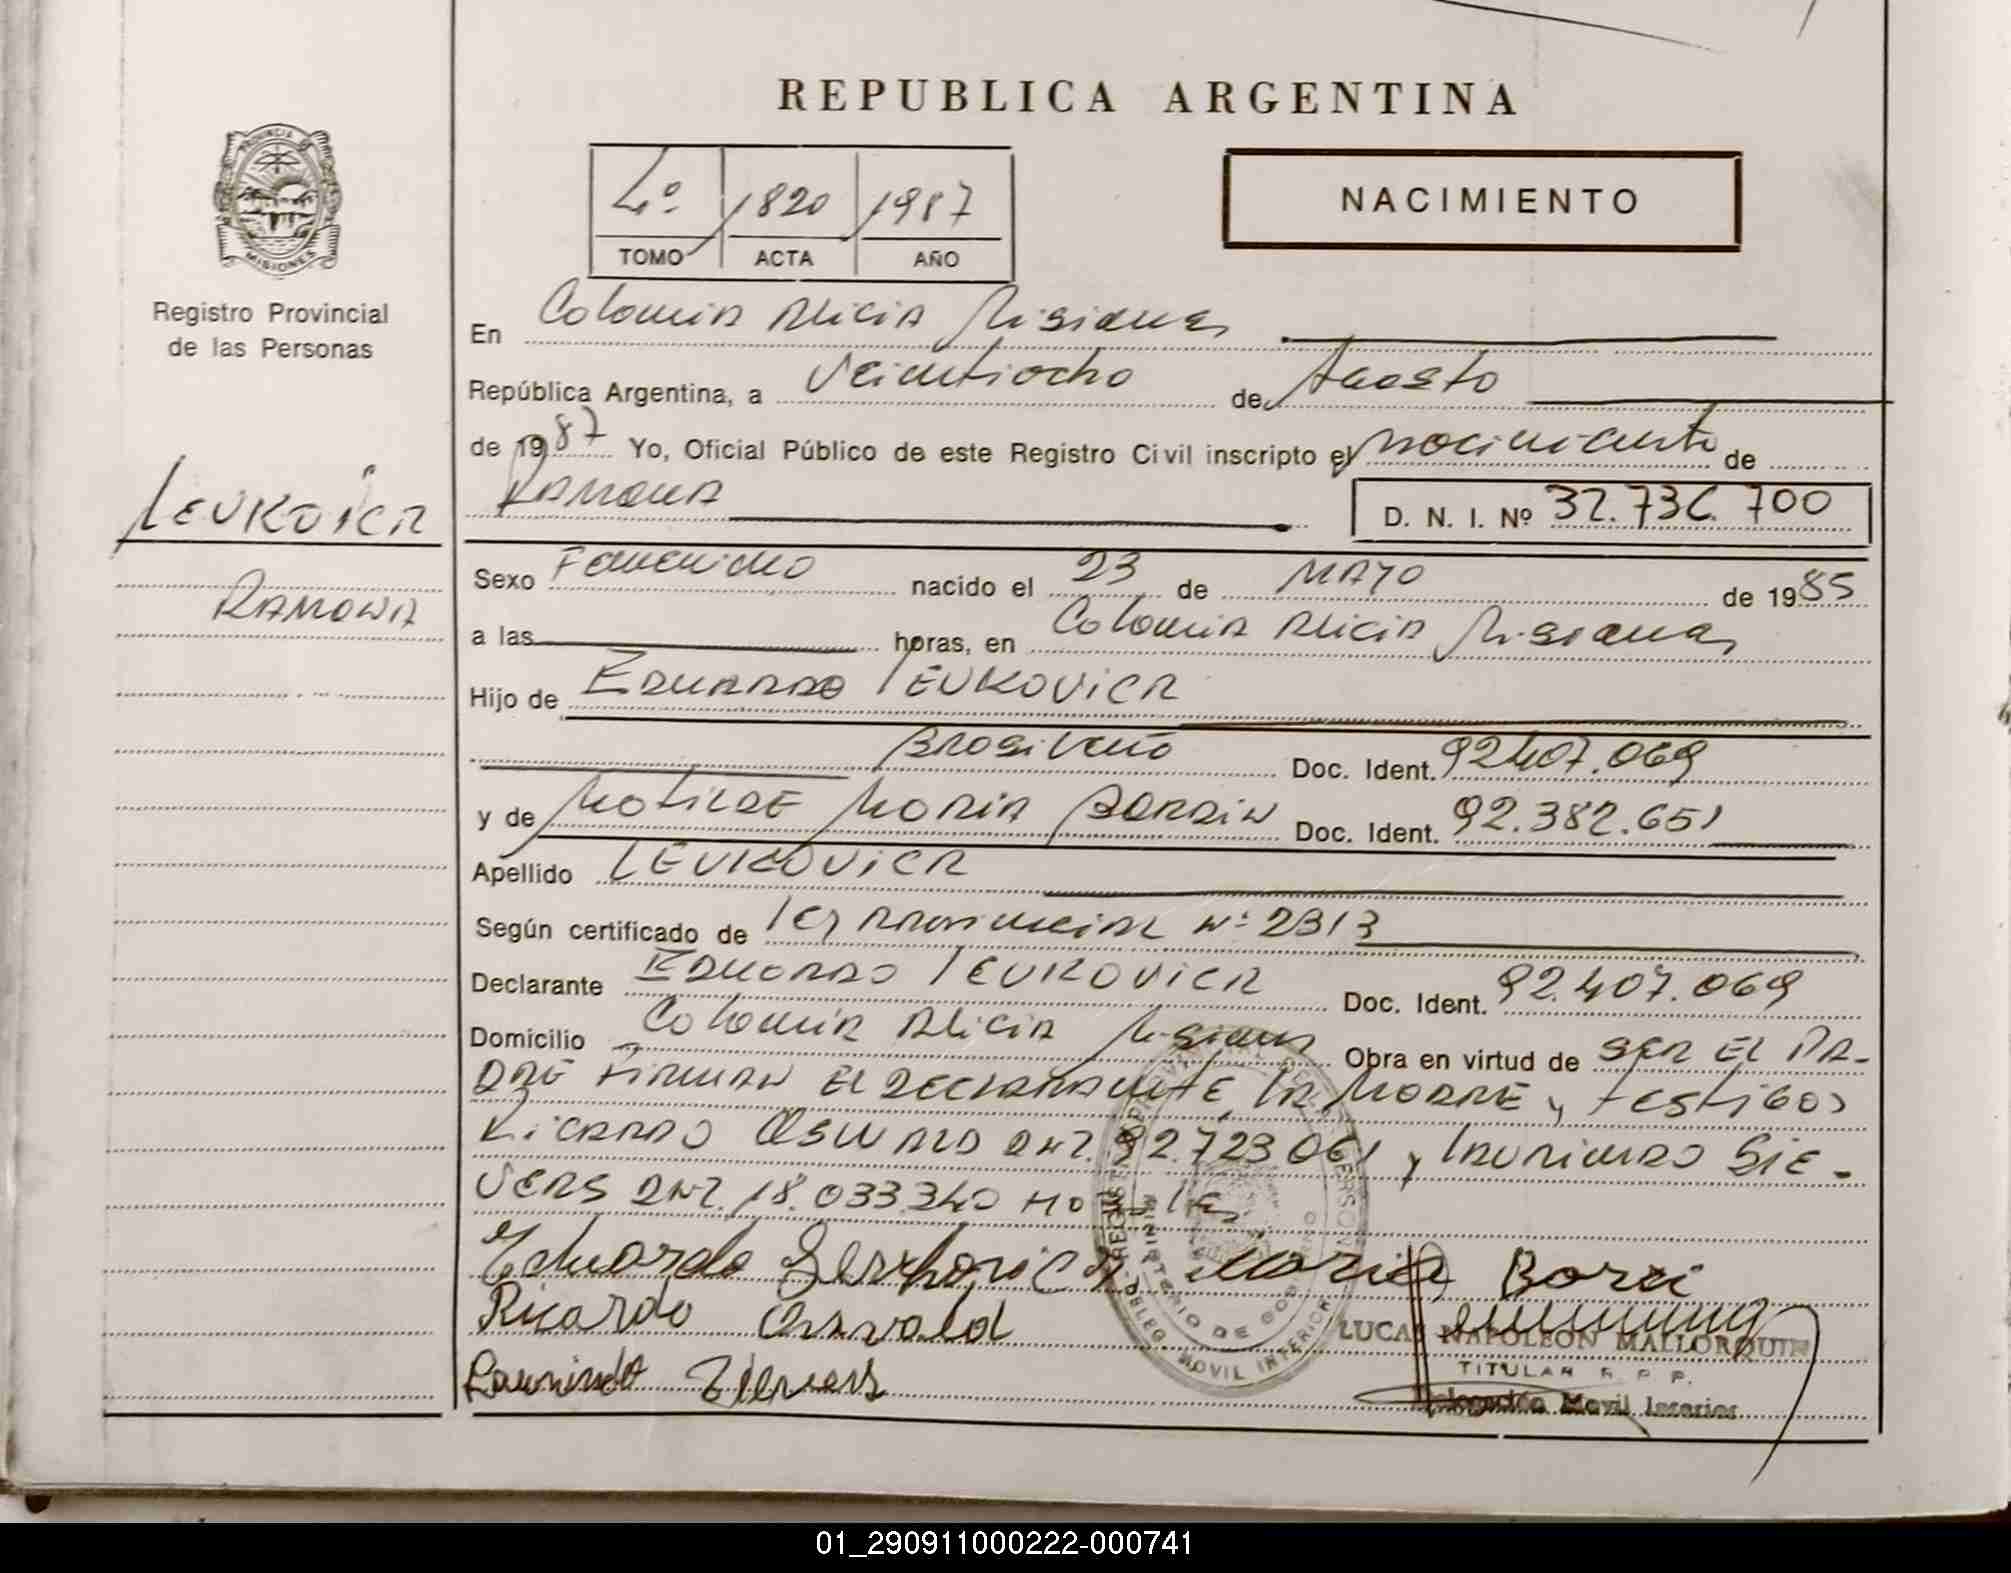 REPUBLICA ARGENTINA
PROVINCIA DE
MISIONES
Registro Provincial
de las Personas
4º 1820 1987
TOMO ACTA AÑO
NACIMIENTO
En Colonia Alicia Misiones
República Argentina, a Veintiocho de Agosto
de 1987 Yo, Oficial Público de este Registro Civil inscripto el nacimiento de
Ramona D. N. I. Nº 32.736.700
LEUKOVICH
RAMONA
Sexo Femenino nacido el 23 de MAYO de 1985
a las horas, en Colonia Alicia Misiones
Hijo de Eduardo LEUKOVICH
Brasileño Doc. Ident. 92407.069
y de Matilde Maria Bardin Doc. Ident. 92.382.651
Apellido LEUKOVICH
Según certificado de Ley Provincial Nº 2313
Declarante Eduardo LEUKOVICH Doc. Ident. 92.407.069
Domicilio Colonia Alicia Misiones Obra en virtud de SER EL PA-
DRE Firman El DECLARANTE, la MADRE y testigos
Ricardo OSWALD DNI. 92.723.061 y Laurindo SIE-
VERS DNI. 18.033.340
Eduardo Leukovich Maria Borci
Ricardo Oswald
LUCAS NAPOLEON MALLORQUIN
TITULAR R. P. P.
Laurindo Sievers Delegación Movil Interior
01_290911000222-000741